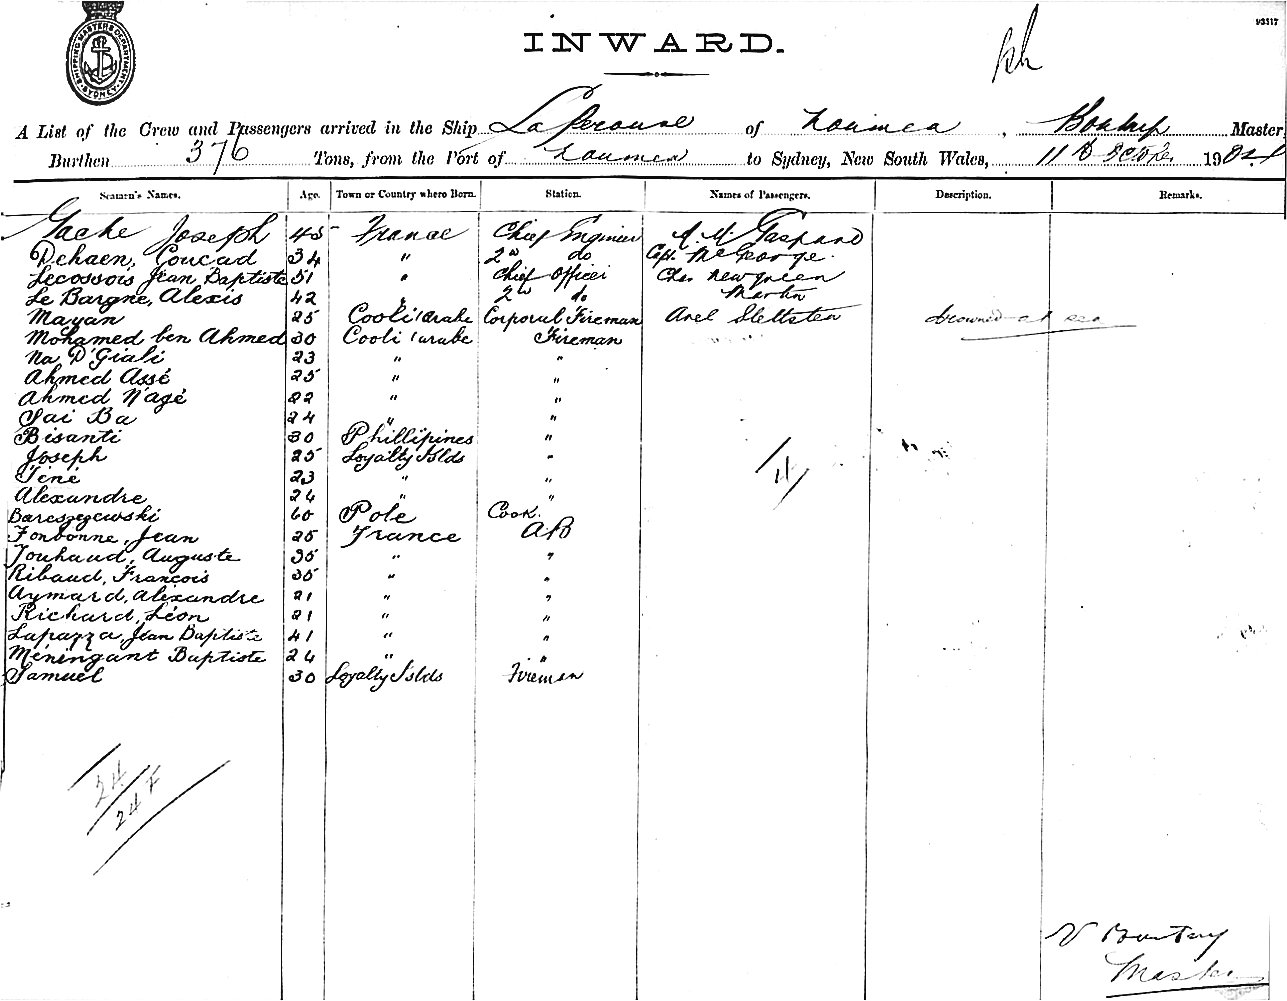 93317
INWARD.
SHIPPING MASTERS DEPARTMENT SYDNEY
A List of the Crew and Passengers arrived in the Ship La Perouse of Noumea, Master
Burthen 376 Tons, from the Port of Noumea to Sydney, New South Wales, 11th 190
Seaman's Names. Age. Town or Country where Born. Station. Names of Passengers. Description. Remarks.
Gache Joseph 45 France Chief Engineer A. M. Gaspard
Dehaen, Coucad 34 " 2nd do Capt. McGeorge
Lecossois Jean Baptiste 51 " Chief Officer Chas Newqueen
Le Bargne, Alexis 42 " 2nd do Martin
Mayan 25 Cooli arabe Corporal Fireman Axel Stettsten drowned at sea
Mohamed ben Ahmed 30 Cooli arabe Fireman
Na D'Giali 23 " "
Ahmed Assé 25 " "
Ahmed N'agé 22 " "
Sai Ba 24 " "
Bisanti 30 Phillipines "
Joseph 25 Loyalty Islds "
Tiné 23 " "
Alexandre 24 " "
Bareszezewski 60 Pole Cook.
Fonbonne, Jean 25 France AB
Jouhaud, Auguste 35 " "
Ribaud, François 35 " "
Aymard, Alexandre 21 " "
Richard, Léon 21 " "
Lapazza, Jean Baptiste 41 " "
Méningant Baptiste 24 " "
Samuel 30 Loyalty Islds Fireman
11
24
24 F
Master